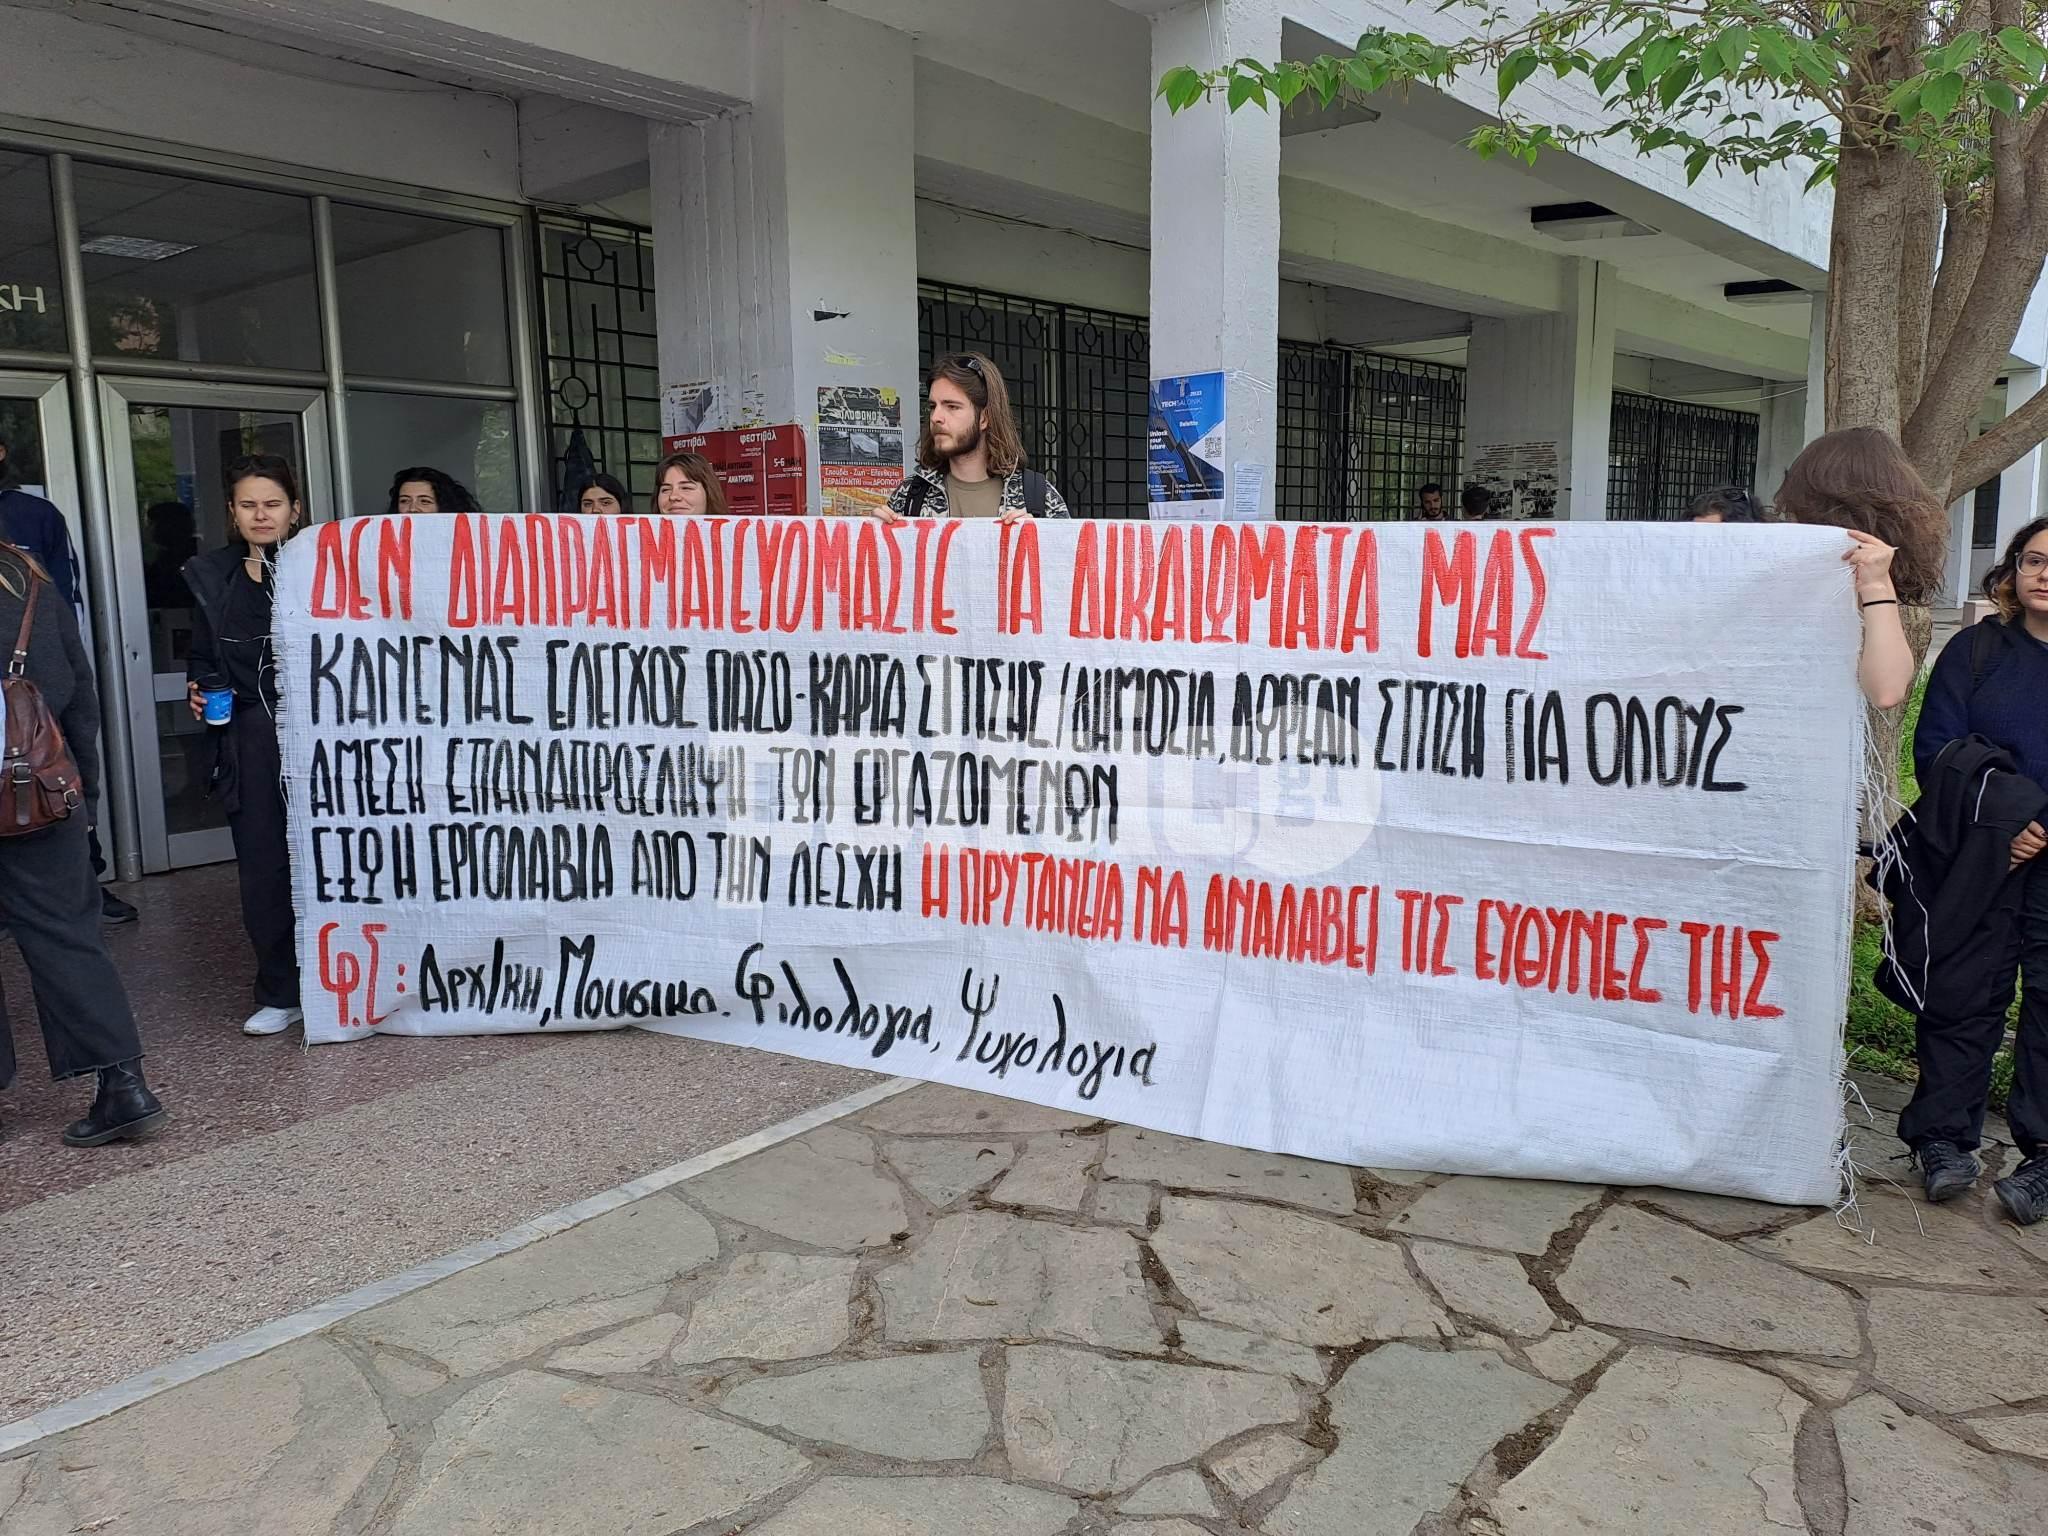 ΚΗ
ΔΕΝ ΔΙΑΠΡΑΓΜΑΤΕΥΟΜΑΣΤΕ ΤΑ ΔΙΚΑΙΩΜΑΤΑ ΜΑΣ
ΚΑΝΕΝΑΣ ΕΛΕΓΧΟΣ ΠΑΣΟ-ΚΑΡΤΑ ΣΙΤΙΣΗΣ/ΔΗΜΟΣΙΑ, ΔΩΡΕΑΝ ΣΙΤΙΣΗ ΓΙΑ ΟΛΟΥΣ
ΑΜΕΣΗ ΕΠΑΝΑΠΡΟΣΛΗΨΗ ΤΩΝ ΕΡΓΑΖΟΜΕΝΩΝ
ΕΞΩ Η ΕΡΓΟΛΑΒΙΑ ΑΠΟ ΤΗΝ ΛΕΣΧΗ Η ΠΡΥΤΑΝΕΙΑ ΝΑ ΑΝΑΛΑΒΕΙ ΤΙΣ ΕΥΘΥΝΕΣ ΤΗΣ
Φ.Σ: Αρχ/κη, Μουσικο. Φιλολογια, Ψυχολογια
φεστιβάλ φεστιβάλ
5-6 ΜΑΗ
ΑΝΑΤΡΟΠΗ
Σπουδές - Ζωή - Ελευθερία
TECHSALONIKI
2023
Deloitte
Unlock
your
future